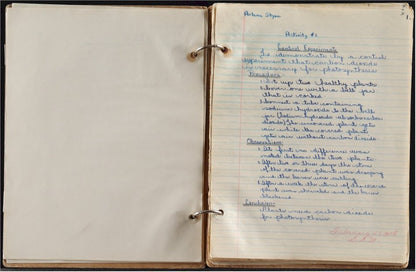 Activity #1
Control Experiment
To demonstrate by a control
experiment that carbon dioxide
is necessary for photosynthesis
Procedure:
1 Set up two healthy plants
2 Cover one with a bell jar
that is corked
3 Connect a tube containing
sodium hydroxide to the bell
jar (Sodium hydroxide absorbs carbon
dioxide) The uncovered plant gets
air while the covered plant
gets air without carbon dioxide
Observations:
1 At first no difference was
noted between the two plants
2 After two or three days the stem
of the covered plant was drooping
and the leaves were wilting
3 After a week the stem of the covered
plant was shriveled and the leaves
Conclusion:
Plants need carbon dioxide
for photosynthesis